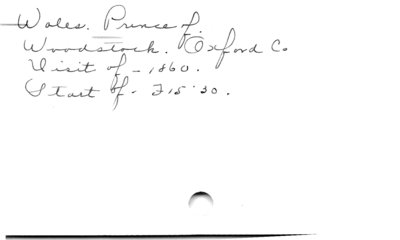 Wales. Prince of.
Woodstock. Oxford Co
Visit of - 1860.
Start of - F15'30.